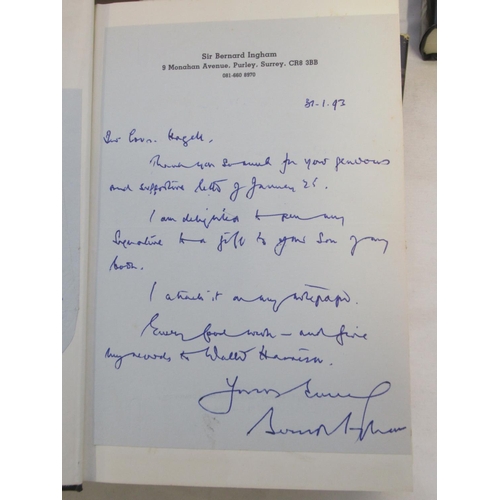 Sir Bernard Ingham
9 Monahan Avenue, Purley, Surrey, CR8 3BB
081-660 8970
31-1.93
Thank you so much for your generous
and supportive letter of January 26.
I am delighted to pen my
signature to a gift to your son of my
book.
I attach it on my notepaper.
Every good wish – and give
my regards to Walter Harrison.
Yours sincerely
Bernard Ingham